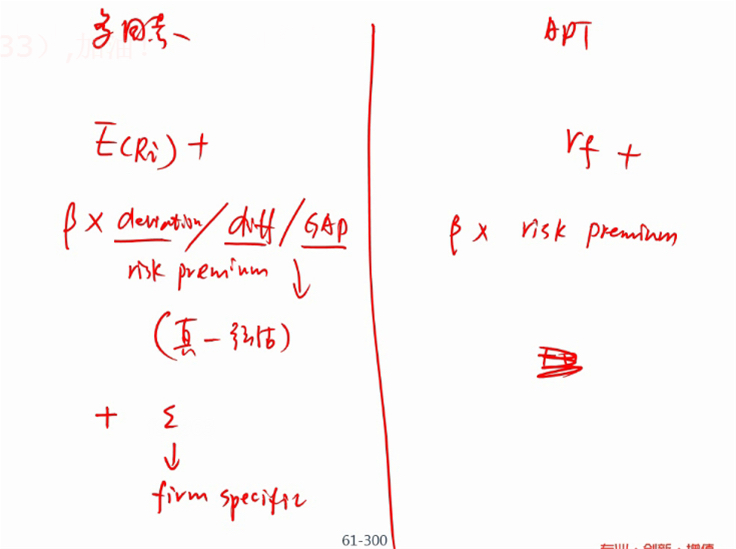 33），加油！
多因素
E(Ri) +
β × deviation / diff / GAP
risk premium
(真 - 预估)
+ Σ
firm specific
APT
rf +
β × risk premium
61-300
专业·创新·增值